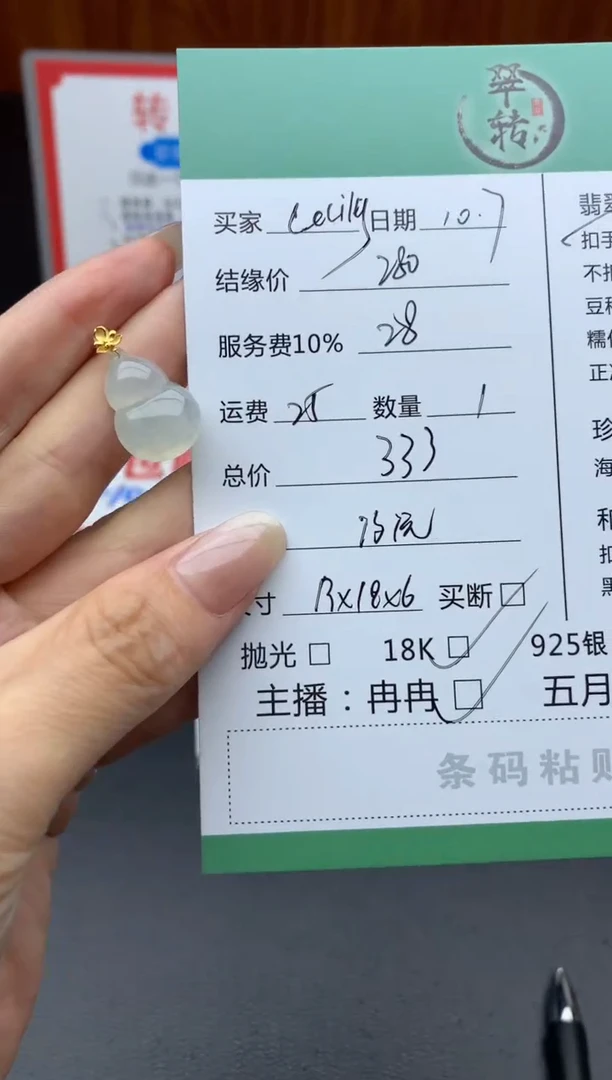 转
翠转
买家 Cecily 日期 10.7
结缘价 280
服务费10% 28
运费 25 数量 1
总价 333
寸 13x18x6 买断
抛光 18K 925银
主播：冉冉 五月
条码粘贴
翡翠
扣手
不折
豆种
正冰
珍
海
和
扣
黑